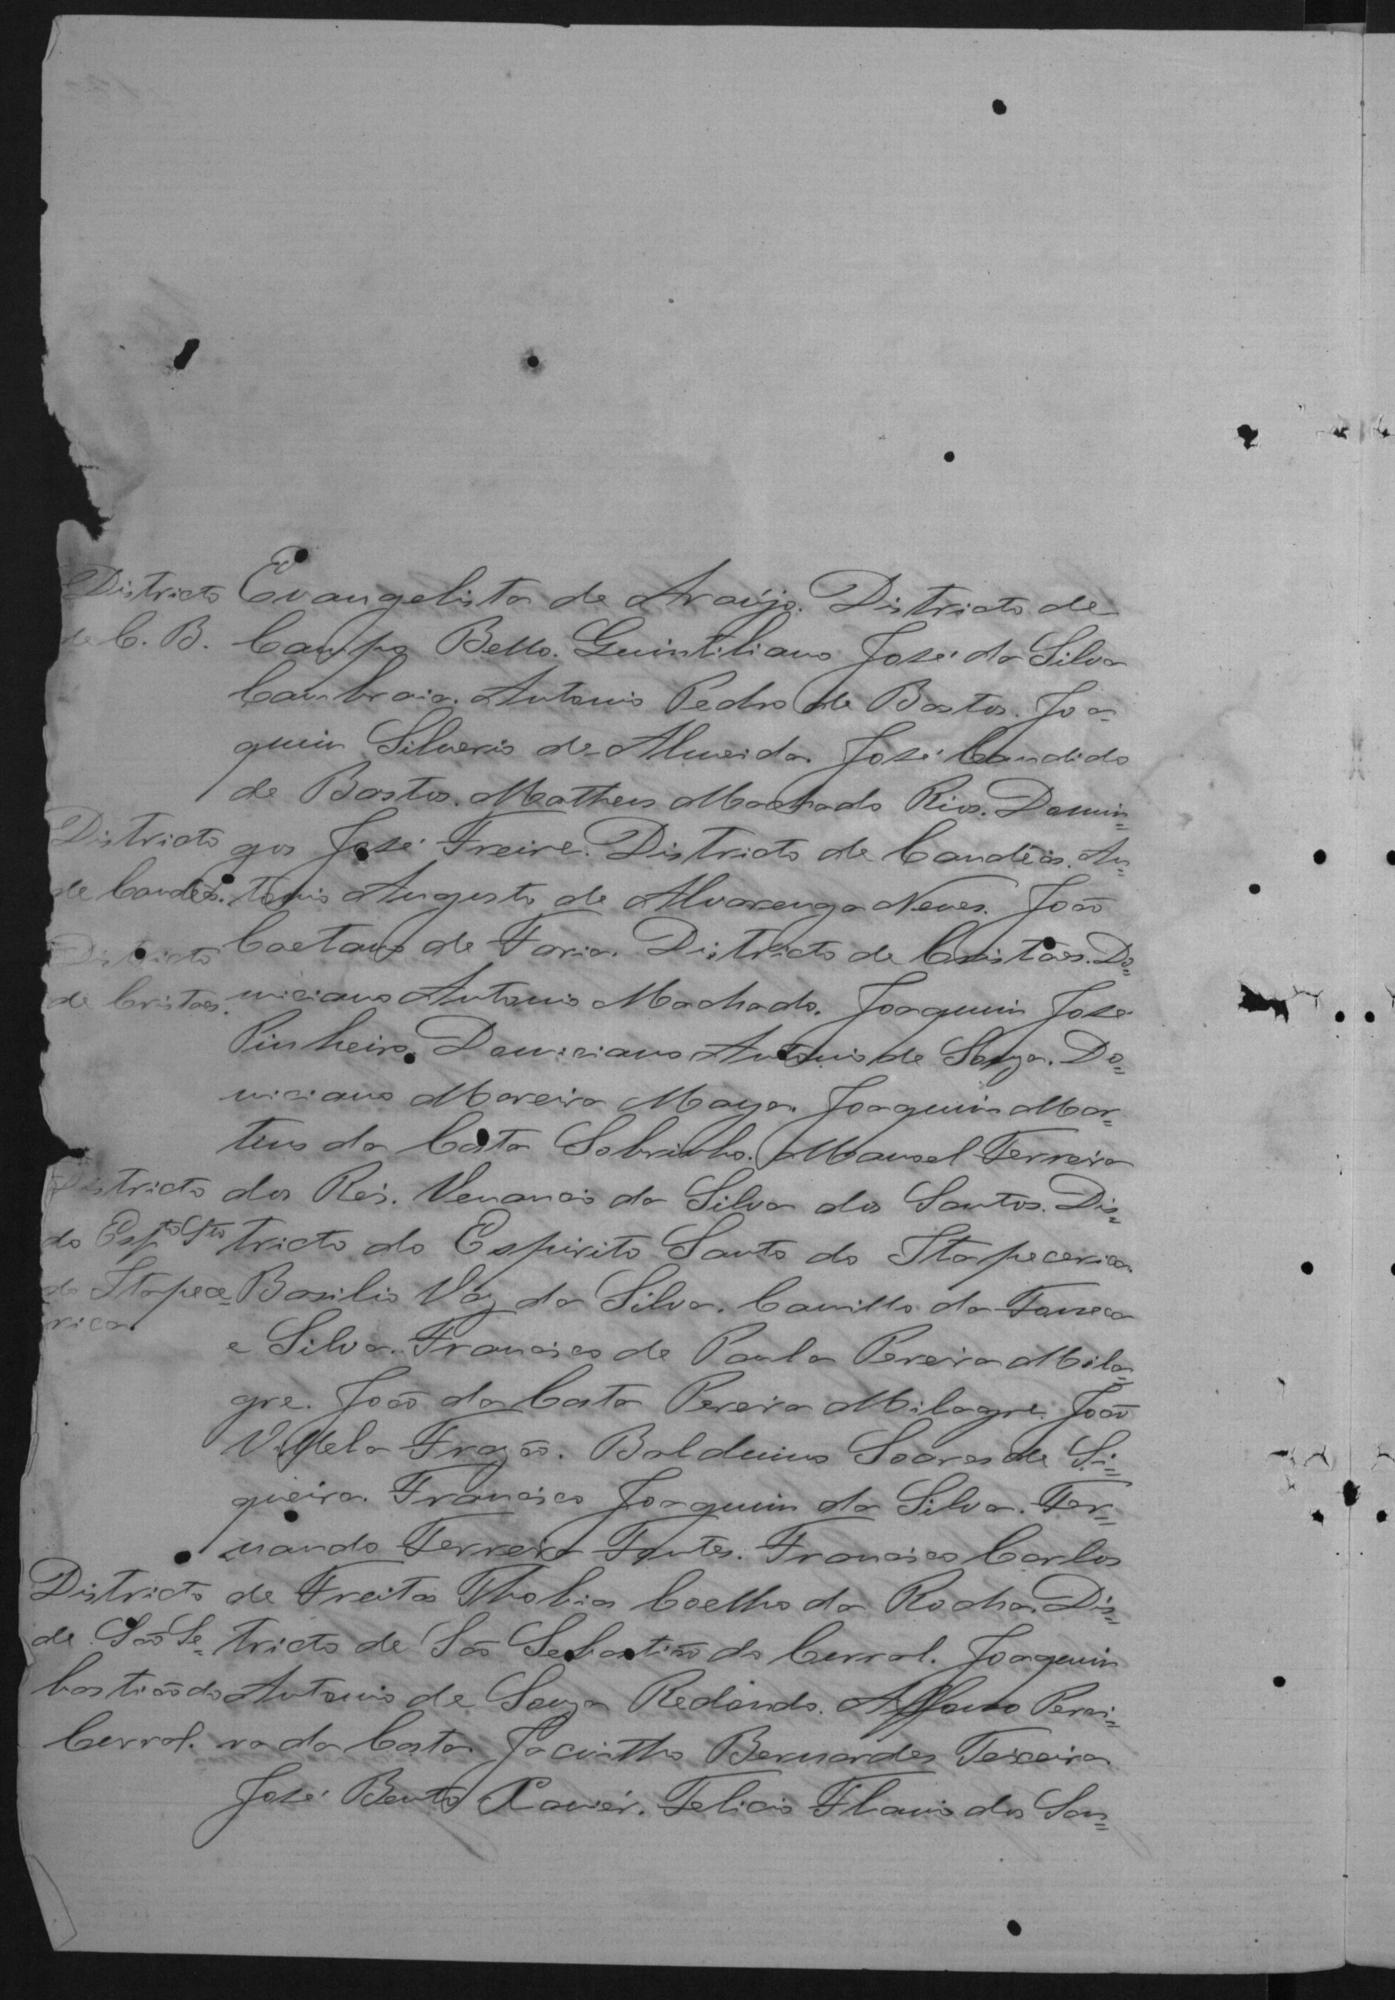 Districto Evangelista de Araújo. Districto de
de C. B. Campo Bello. Quintiliano José da Silva
Cambraia. Antonio Pedro de Bastos. Joa=
quim Silverio de Almeida. José Candido
de Bastos. Matheus Machado Rios. Domin=
Districto gos José Freire. Districto de Candeias. An=
de Candeas. tonio Augusto de Alvarenga Neves. João
Districto Caetano de Faria. Districto de Cristaes. Do=
de Cristaes. miciano Antonio Machado. Joaquim José
Pinheiro. Domiciano Antonio de Souza. Do=
miciano Moreira Maya. Joaquim Mar=
tins da Costa Sobrinho. Manoel Ferreira
Districto dos Reis. Venancio da Silva dos Santos. Dis=
do Espto Sto tricto do Espirito Santo do Itapecerica.
do Itapece= Basilio Vaz da Silva. Camillo da Fonseca
rica.
e Silva. Francisco de Paula Pereira Mila=
gre. João da Costa Pereira Milagre. João
Villela Frazão. Balduino Soares de Si=
queira. Francisco Joaquim da Silva. Fer=
nando Ferreira Fontes. Francisco Carlos
Districto de Freitas Thobias Coelho da Rocha. Dis=
de São Se= tricto de São Sebastião do Curral. Joaquim
bastião do Antonio de Souza Redondo. Affonso Perei=
Curral. ra da Costa. Jacintho Bernardes Teixeira.
José Bento Xavier. Felicio Flavio dos San=